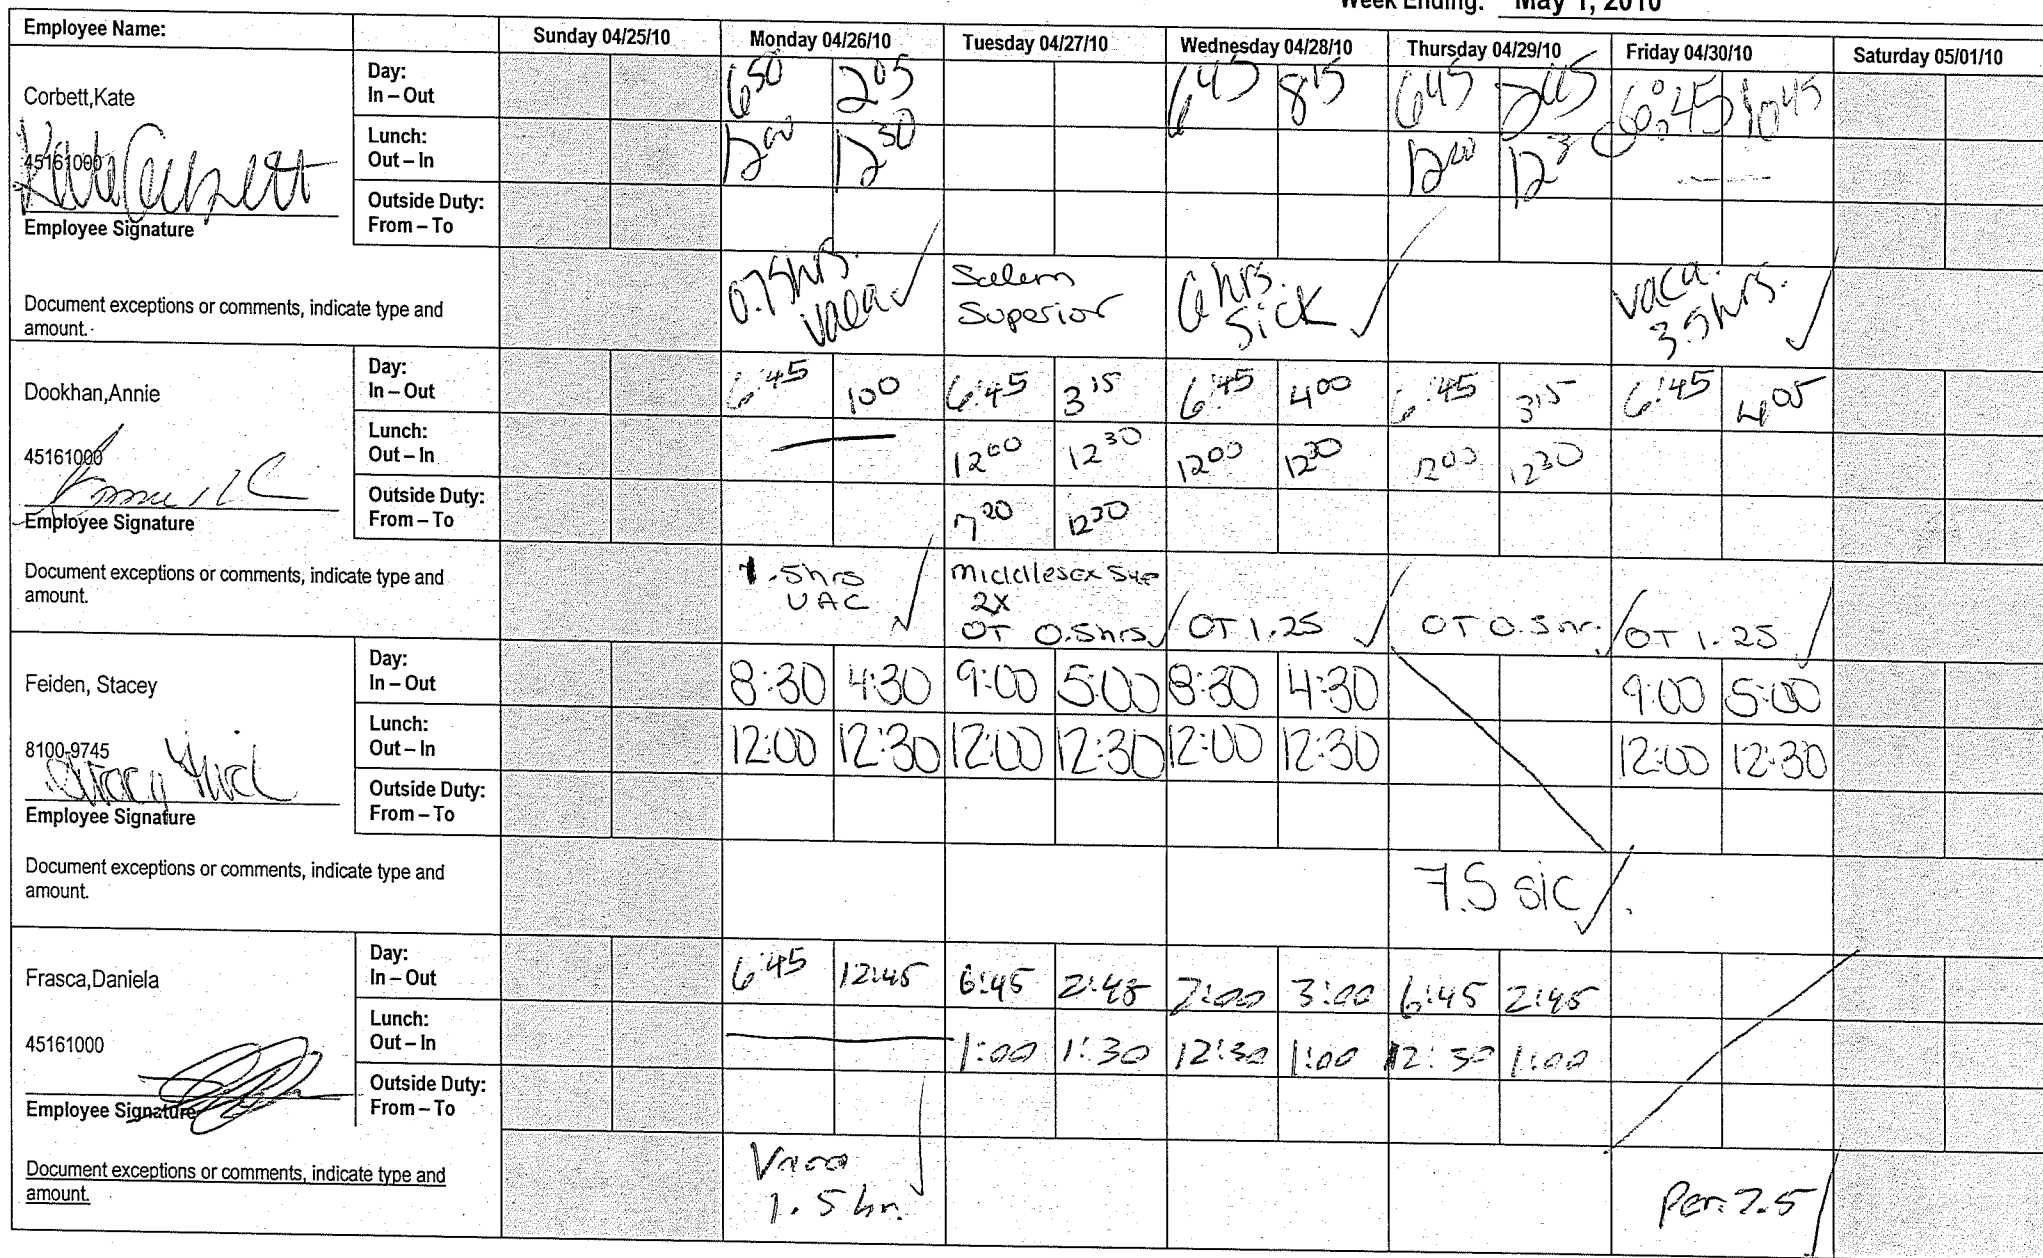 Week Ending: May 1, 2010
Employee Name: Sunday 04/25/10 Monday 04/26/10 Tuesday 04/27/10 Wednesday 04/28/10 Thursday 04/29/10 Friday 04/30/10 Saturday 05/01/10
Corbett,Kate
45161000
Kate Corbett
Employee Signature
Day:
In – Out
6 50 2 05 6 45 8 15 6 45 2 45 6:45 10 45
Lunch:
Out – In
12 00 12 30 12 00 12 3
Outside Duty:
From – To
Document exceptions or comments, indicate type and
amount.
0.75hrs.
vaca
Salem
Superior
6 hrs.
Sick
vaca.
3.5hrs.
Dookhan,Annie
45161000
Employee Signature
Day:
In – Out
6:45 1 00 6:45 3 15 6:45 4 00 6:45 3 15 6:45 4 05
Lunch:
Out – In
12 00 12 30 12 00 12 30 12 00 12 30
Outside Duty:
From – To
12 30
Document exceptions or comments, indicate type and
amount.
1.5hrs
VAC
Middlesex Sup
2X
OT 0.5hrs
OT 1.25
OT 0.5 hr.
OT 1.25
Feiden, Stacey
8100-9745
Employee Signature
Day:
In – Out
8:30 4:30 9:00 5:00 8:30 4:30 9:00 5:00
Lunch:
Out – In
12:00 12:30 12:00 12:30 12:00 12:30 12:00 12:30
Outside Duty:
From – To
Document exceptions or comments, indicate type and
amount.
7.5 sic
Frasca,Daniela
45161000
Employee Signature
Day:
In – Out
6:45 12:45 6:45 2:45 7:00 3:00 6:45 2:45
Lunch:
Out – In
1:00 1:30 12:30 1:00 12:30 1:00
Outside Duty:
From – To
Document exceptions or comments, indicate type and
amount.
Vaca
1.5 hr.
Per. 7.5